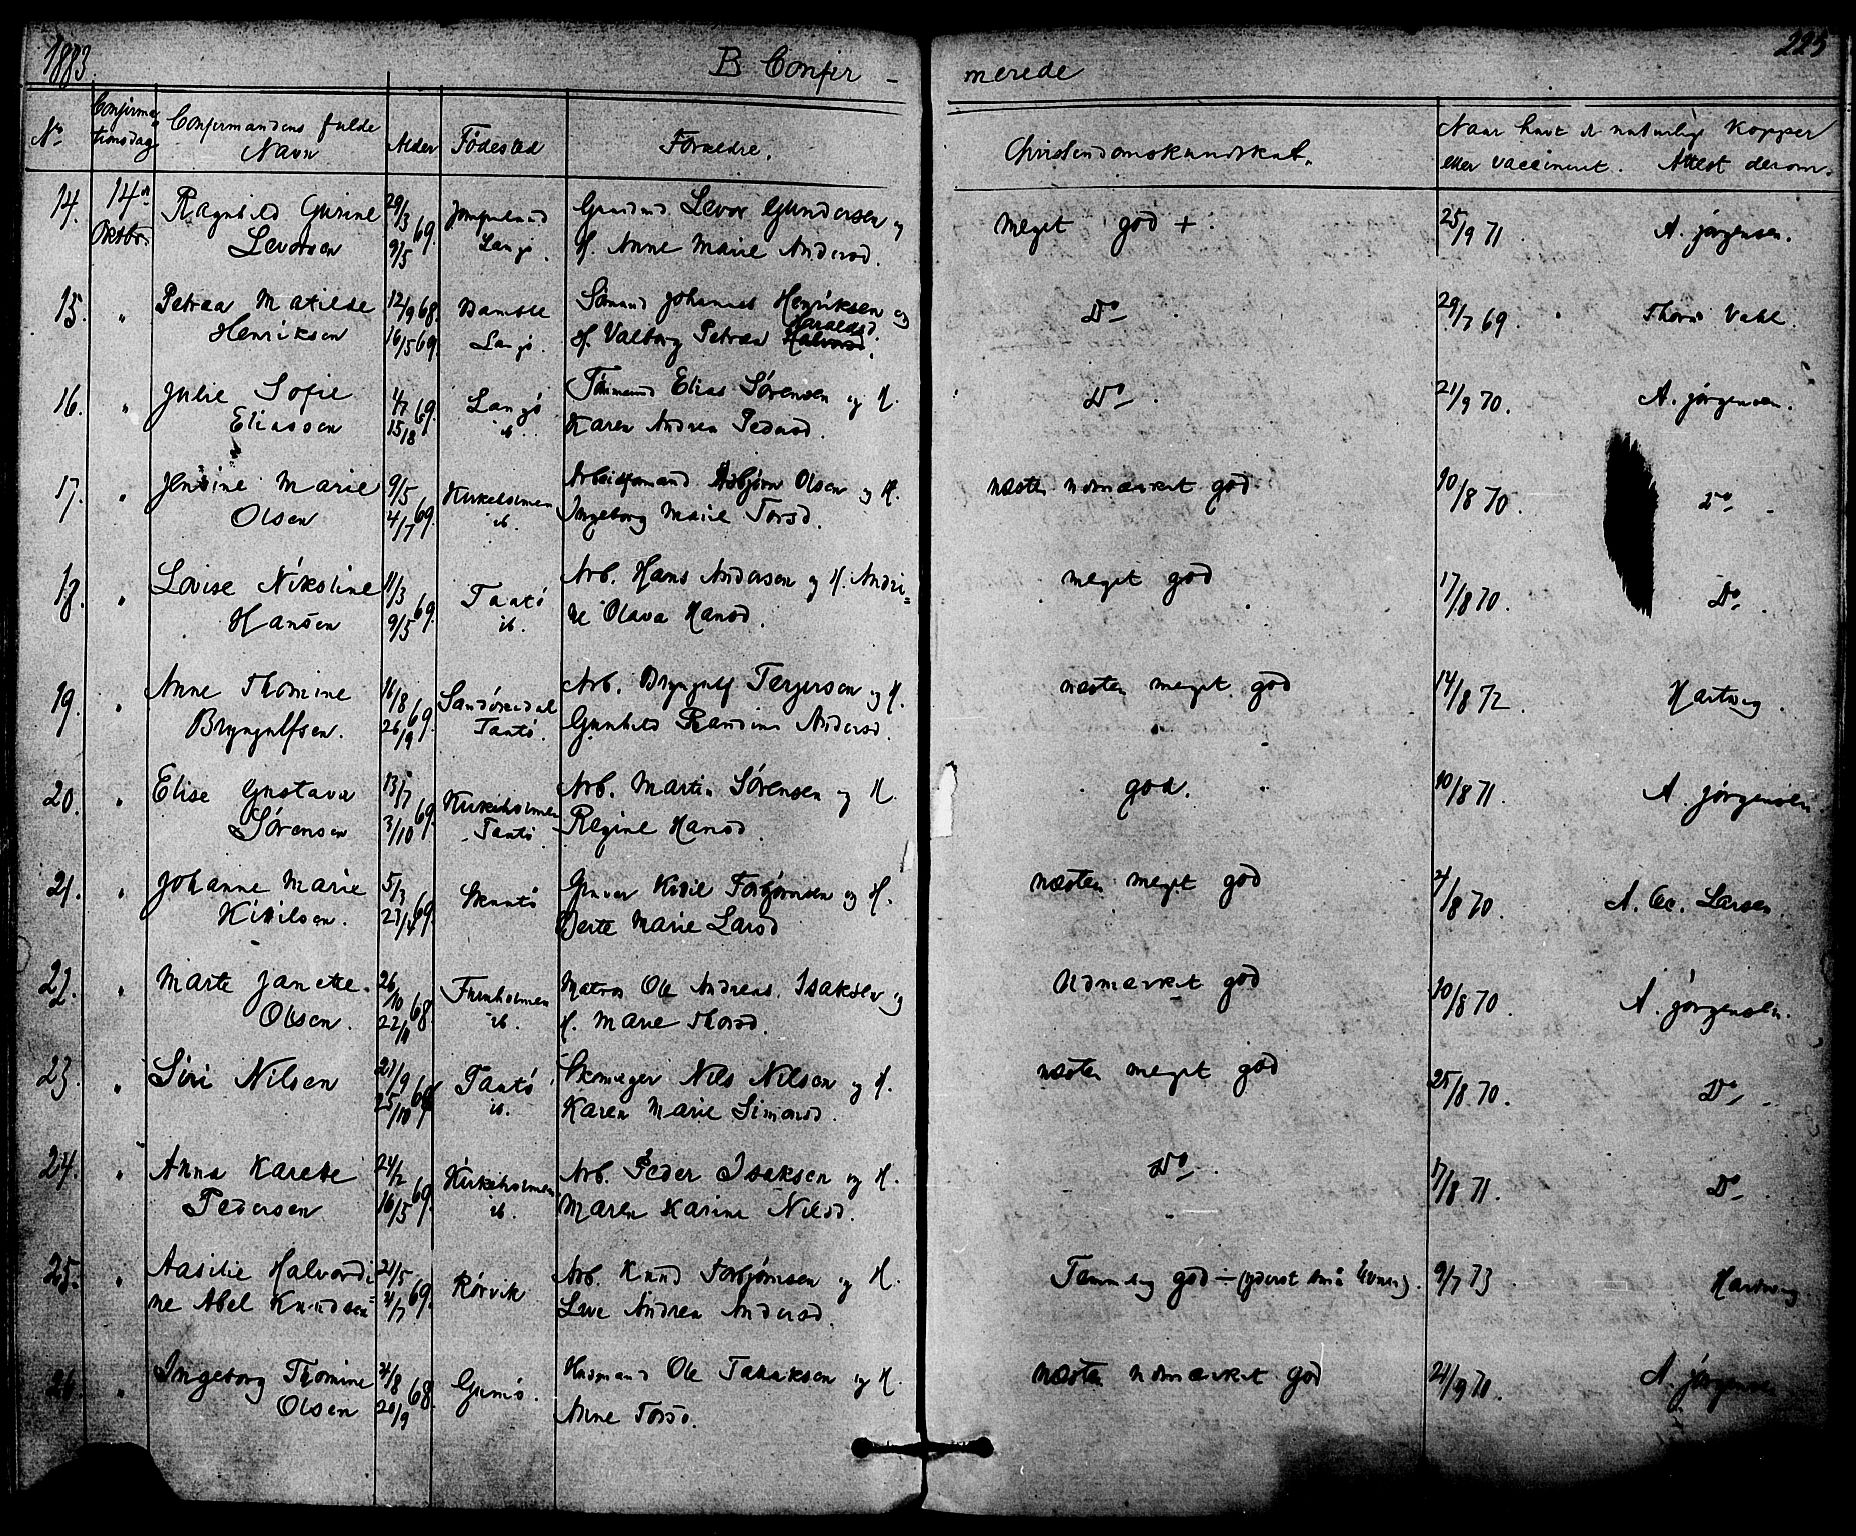 1883
B Confir -
merede
225
No
Confirma-
tionsdag
Confirmandens fulde
Navn
Alder
Fødested
Forældre.
Christendomskundskab.
Naar havt de naturlige Kopper
eller vaccineret. Attest derom.
14. 14de Ragnhild Gurine 29/3 69. Gaardmd Levor Gundersen og meget god +. 25/9 71. A. Jørgensen.
Oktbr. Levorsen 9/5 Langø. H. Anne Marie Andersd.
15. " Petrea Matilde 12/9 68. Bamble Sømand Johannes Henriksen og Do 29/7 69. Vahl.
Haraldsd.
Henriksen 16/5 69. Langø. H. Valborg Petrea Halvorsd.
16. " Julie Sofie 4/7 69. Langø Elias Sørensen og H. Do. 21/9 70. A. Jørgensen.
Eliassen 15/8 ib. Karen Andrea Pedersd.
17. " Jensine Marie 9/5 69. Kirkeholmen Arbeidsmand Asbjørn Olsen og H. næsten udmærket god 10/8 70. Do
Olsen 4/7 ib. Ingeborg Marie Torsd.
18. " Lovise Nikoline 11/3 69. Taatø Arb. Hans Andersen og H. Andri= meget god 17/8 70. Do.
Hansen 9/5 ib. ne Olava Hansd.
19. " Anne Thomine 16/8 69. Sandøkedal Arb. Brynyulf Terjersen og H. næsten meget god 14/8 72. Hartwig.
Brynyulfsen. 26/9 Taatø. Gunhild Randine Andersd.
20. " Elise Gustava 13/7 69. Kirkeholmen Arb. Martin Sørensen og H. god. 10/8 71. A. Jørgensen
Sørensen 3/10 Taatø. Regine Hansd.
21. " Johanne Marie 5/3 69. Skaatø Kittil Torbjørnsen og H. næsten meget god 4/8 70. A. Chr. Larsen
Kittilsen. 23/4 Berte Marie Larsd
22. " Marte Janette 26/10 68. Furuholmen Matros Ole Andreas Isaksen og Udmærket god 10/8 70. A. Jørgensen.
Olsen. 22/11 ib. H. Marie Thorsd.
23. " Siri Nilsen 27/9 68 Taatø Skomager Nils Nilsen og H. næsten meget god 25/8 70. Do
25/10 ib. Karen Marie Simonsd.
24. " Anna Karete 24/2 69. Kirkeholmen Arb. Peder Isaksen og H. Do. 17/8 71. Do
Pedersen 16/5 ib. Maren Karine Nilsd.
25. " Aasilie Halvordi- 21/5 69. Rørvik Arb. Knud Torbjørnsen og H. Temmelig god - (yderst små Evner). 9/7 73. Hartwig
ne Abel Knudsen 4/7 Live Andrea Andersd.
26. " Ingeborg Thomine 4/8 68. Gumø. Husmand Ole Isaksen og H. næsten udmærket god 21/9 70. A. Jørgensen
Olsen 20/9 Anne Torsd.